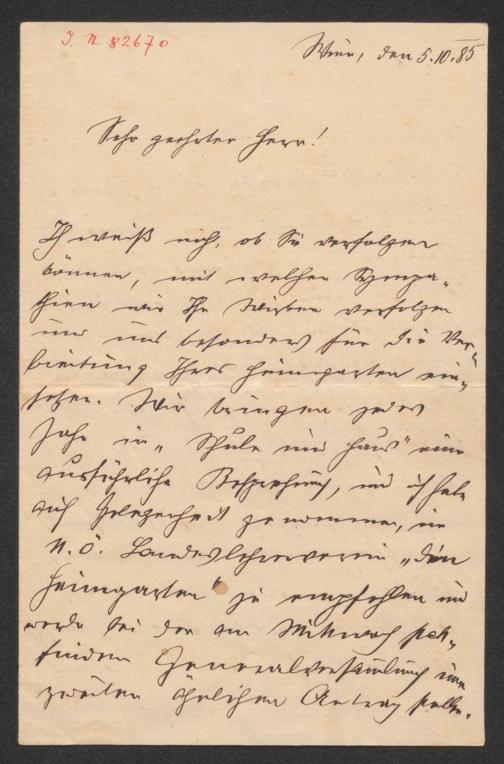 J. N. 82670
Wien, den 5.10.85
Sehr geehrter Herr!
Ich weiß nich, ob Sie verfolgen
können, mit welchen Sympa-
thien wir Ihr Wirken verfolgen
und uns besonders für die Ver-
breitung Ihres Heimgarten ein-
setzen. Wir bringen jedes
Jahr in „Schule und Haus" eine
ausführliche Besprechung, und ich habe
auch Gelegenheit genommen, im
N. Ö. Landeslehrerverein „den
Heimgarten" zu empfehlen und
werde bei der am Mittwoch statt-
findenden Generalversammlung einen
zweiten ähnlichen Antrag stellen.